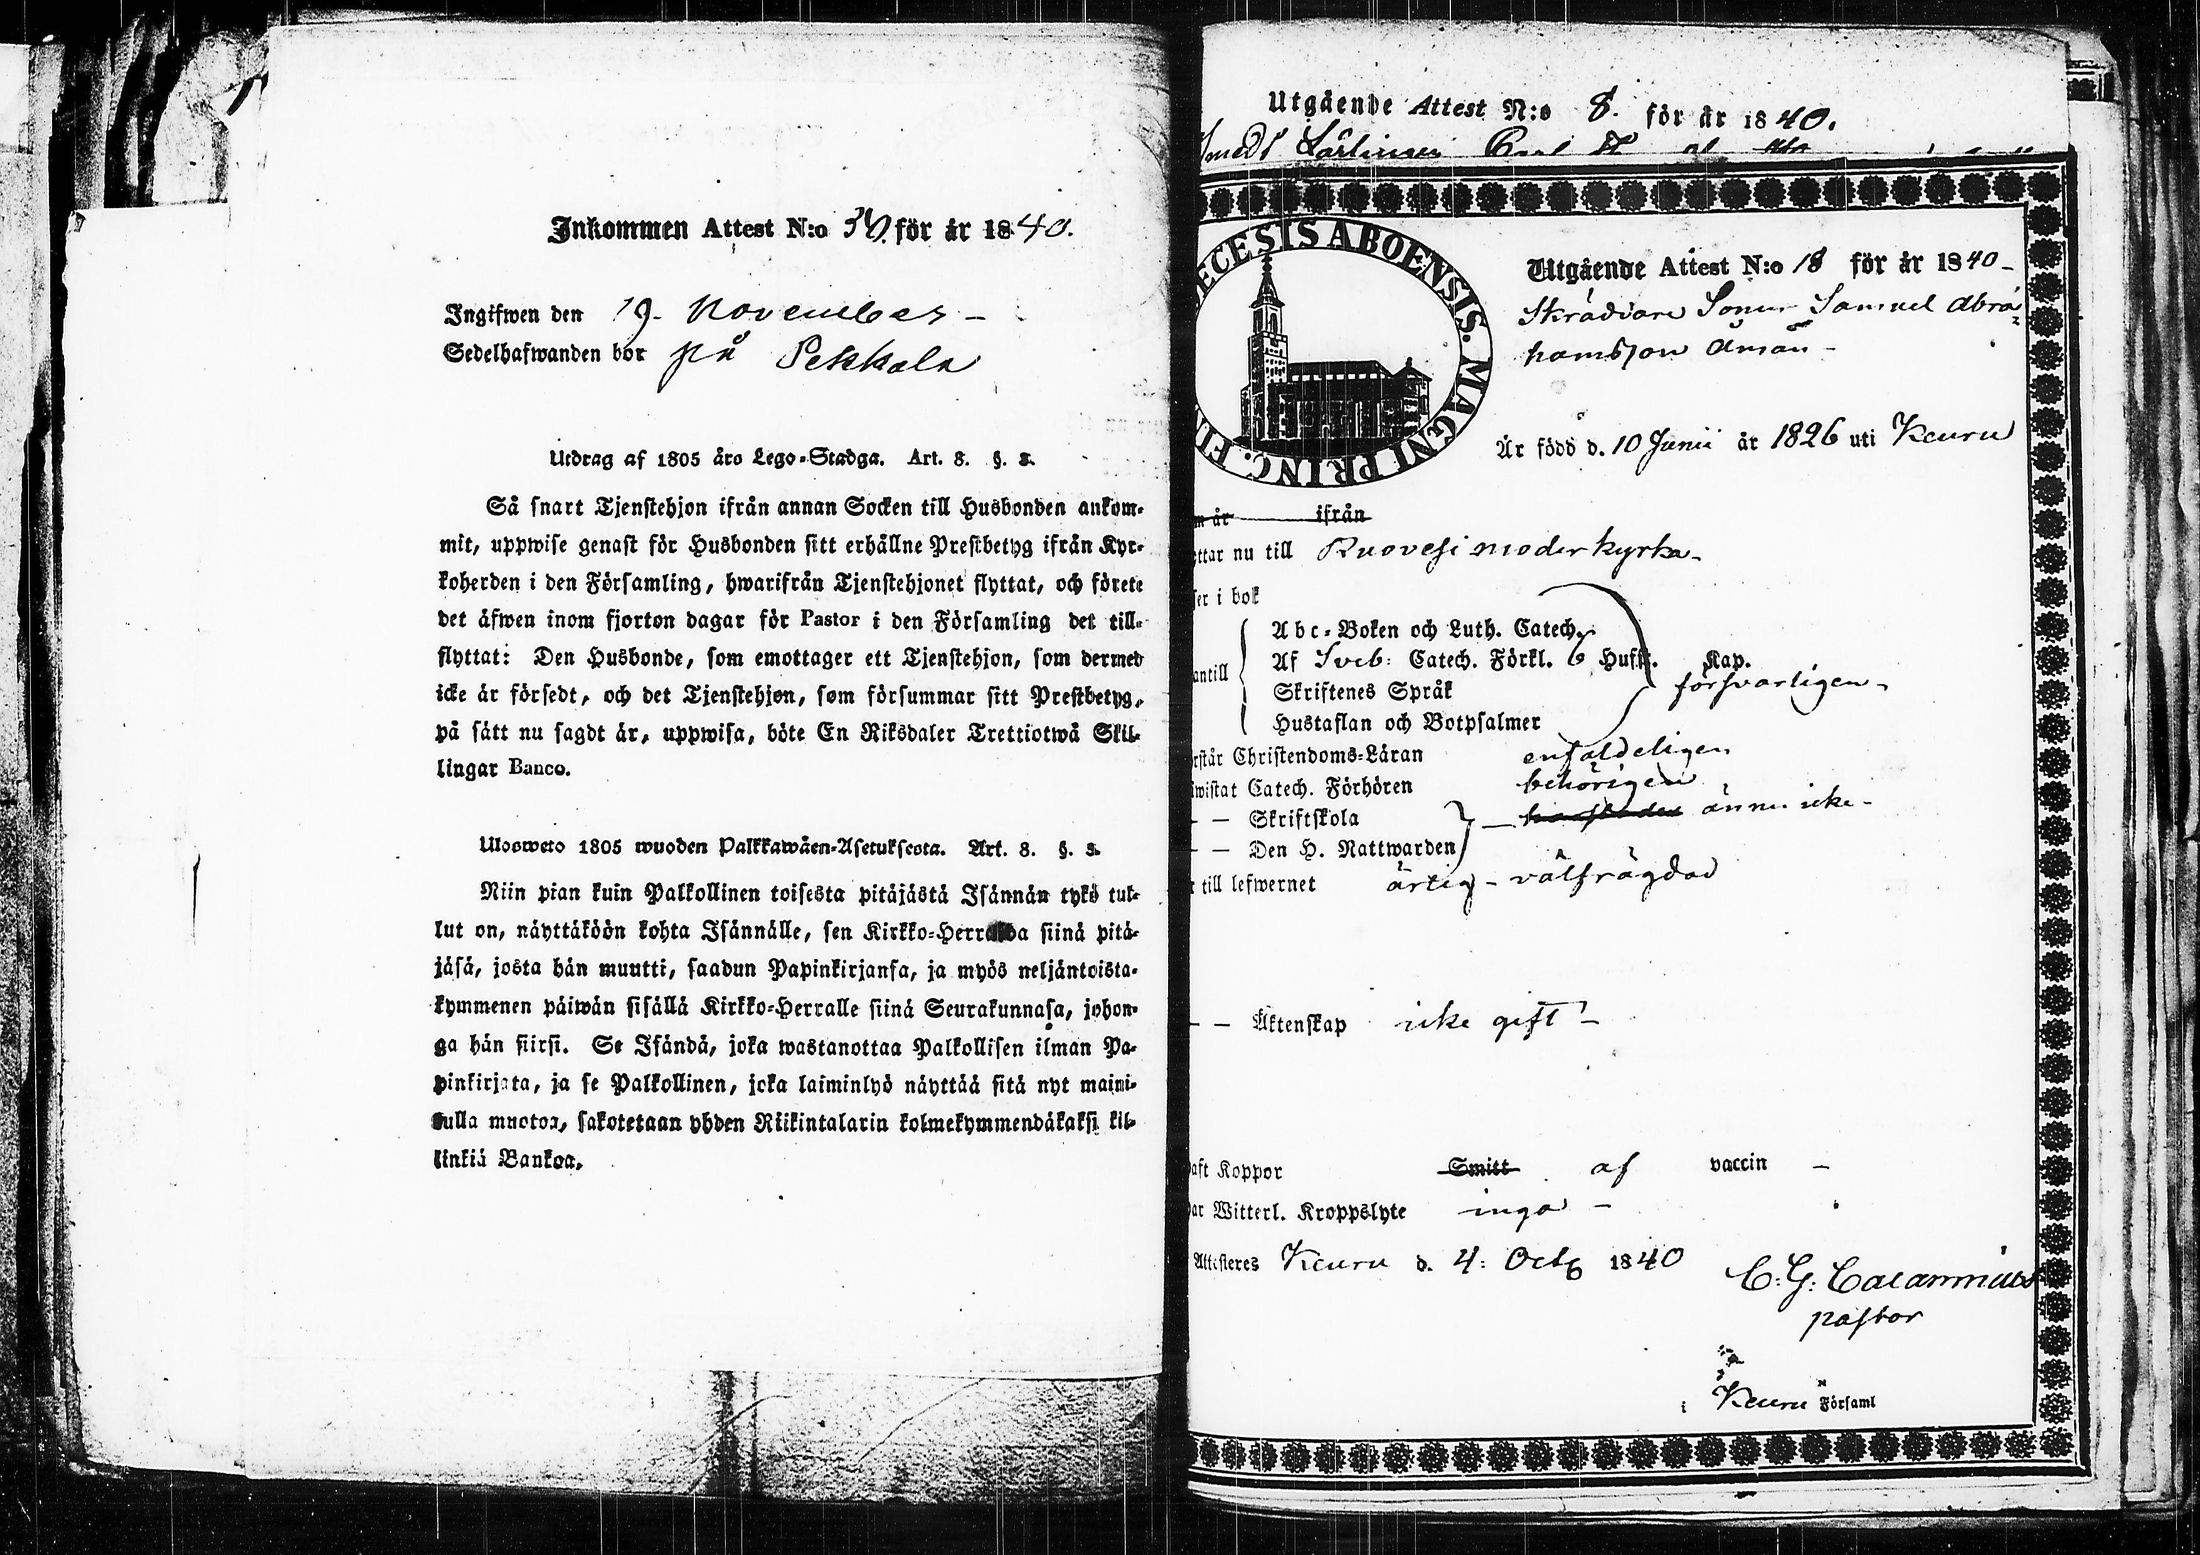 Inkommen Attest N:o för år 1840.
Ingifwen den 19. November –
Sedelhafwanden bor på Pekkala
Utdrag af 1805 års Lego-Stadga. Art. 8. §. 3.
Så snart Tjenstehjon ifrån annan Socken till Husbonden ankom-
mit, uppwise genast för Husbonden sitt erhållne Prestbetyg ifrån Kyr-
koherden i den Församling, hwarifrån Tjenstehjonet flyttat, och förete
det äfwen inom fjorton dagar för Pastor i den Församling det till-
flyttat: Den Husbonde, som emottager ett Tjenstehjon, som dermed
icke är försedt, och det Tjenstehjon, som försummar sitt Prestbetyg,
på sätt nu sagdt är, uppwisa, böte En Riksdaler Trettiotwå Skil-
lingar Banco.
Ulosweto 1805 wuoden Palkkawäen-Asetuksesta. Art. 8. §. 3.
Niin pian kuin Palkollinen toisesta pitäjästä Isännän tykö tul-
lut on, näyttäköön kohta Isännälle, sen Kirkko-Herralda siinä pitä-
jäsä, josta hän muutti, saadun Papinkirjansa, ja myös neljäntoista-
kymmenen päiwän sisällä Kirkko-Herralle siinä Seurakunnasa, johon-
ga hän siirsi. Se Isändä, joka wastanottaa Palkollisen ilman Pa-
pinkirjata, ja se Palkollinen, joka laiminlyö näyttää sitä nyt maini-
tulla muotoa, sakotetaan yhden Riikintalarin kolmekymmendäkaksi kil-
linkiä Bankoa.
Utgående Attest N:o 8. för år 1840.
DIECESIS ABOENSIS. MAGNI PRINC. FIN
Utgående Attest N:o 18 för år 1840 –
Skräddare Sonen Samuel Abra-
hamsson Åman –
Är född d. 10 Junii år 1826 uti Keuru
m år ifrån
ttar nu till Ruovesi moderkyrka –
ser i bok
Abc-Boken och Luth. Catech.
Af Sveb: Catech. Förkl. 6 Hufst. Kap.
antill Skriftenes Språk försvarligen –
Hustaflan och Botpsalmer
rstår Christendoms-Läran enfaldeligen
iwistat Catech. Förhören behörigen
– – Skriftskola – ännu icke –
– – Den H. Nattwarden
r till lefwernet ärlig – välfrägdad
– – Äktenskap icke gift –
aft Koppor Smitt af vaccin –
ar Witterl. Kroppslyte inga –
Attesteres Keuru d. 4: Octb 1840
C: G: Calamnius
pastor
i Keuru Församl